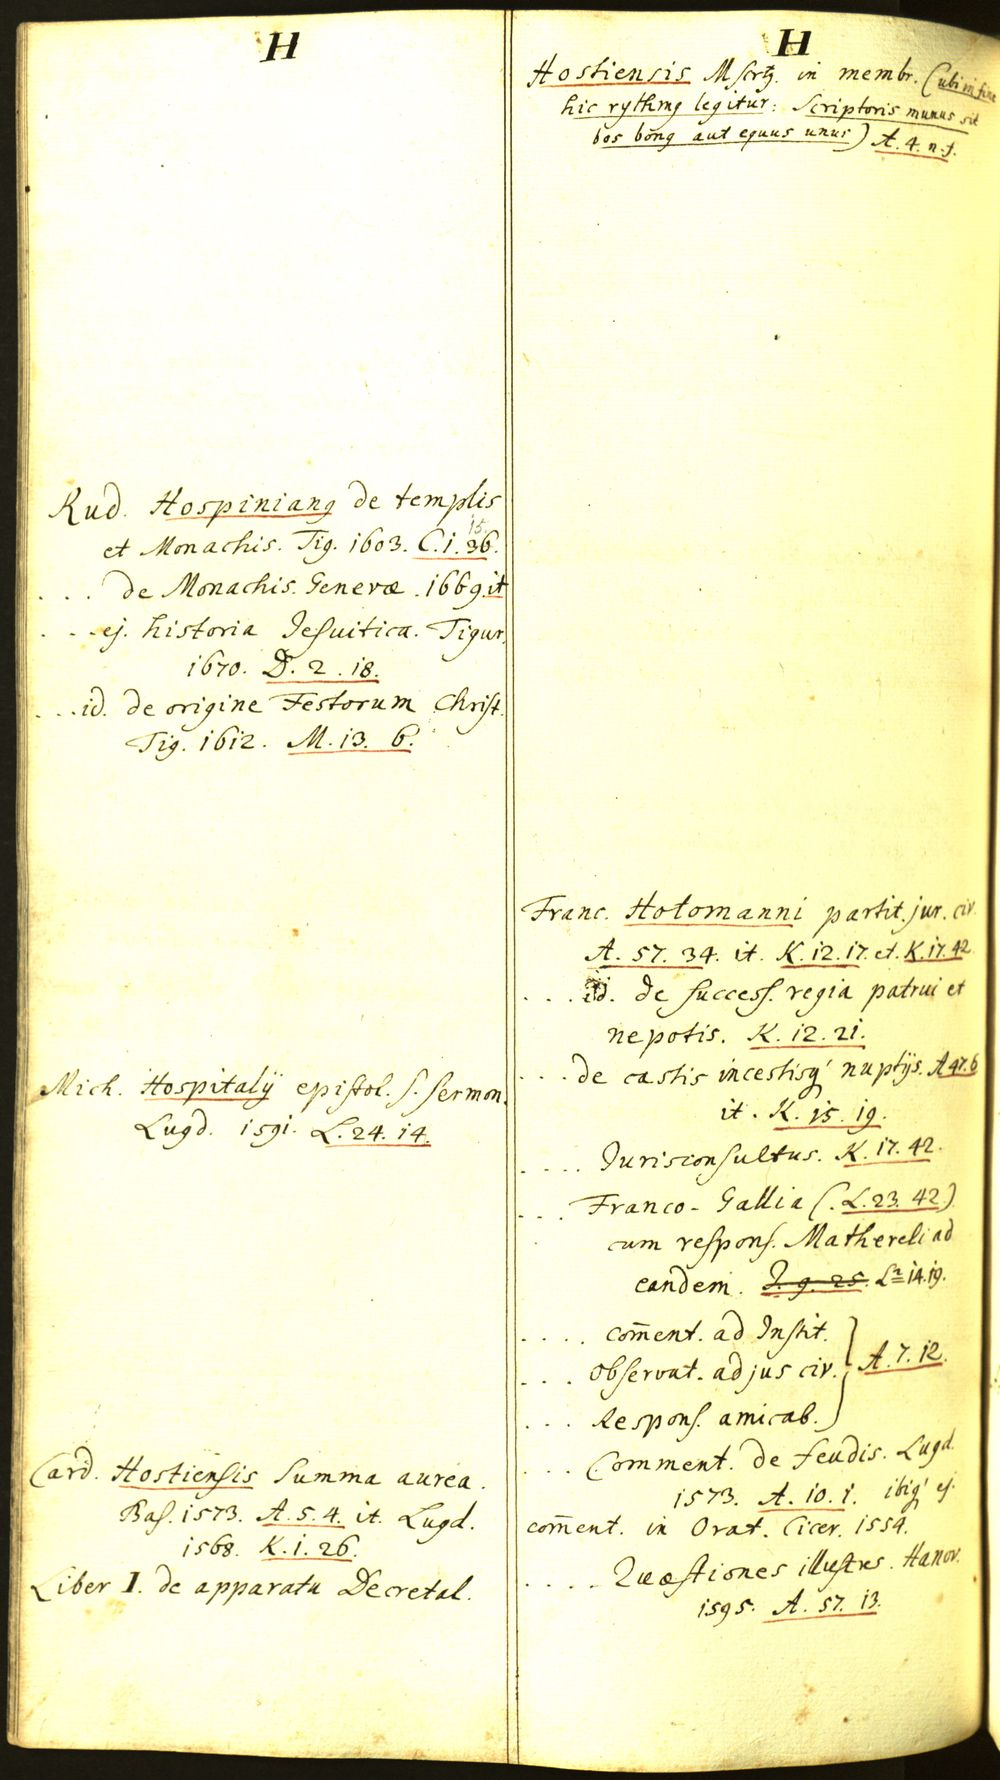 H
Rud. Hospinianꝰ de templis
et Monachis. Tig. 1603. C. 1. 36.
15.
... de Monachis. Genevæ. 1669. it
... ej. historia Jesuitica. Tigur.
1670. D. 2. 18.
... id. de origine Festorum Christ.
Tig. 1612. M. 13. 6.
Mich. Hospitalij epistol. s. sermon.
Lugd. 1591. L. 24. 14.
Card. Hostiensis Summa aurea.
Bas. 1573. A. 5. 4. it. Lugd.
1568. K. 1. 26.
Liber I. de apparatu Decretal.
H
Hostiensis Mscrꝰ. in membr. (ubi in fine
hic rythmꝰ legitur: Scriptoris munus sit
bos bōnꝰ aut equus unus) A. 4. n. 1.
Franc. Hotomanni partit. jur. civ.
A. 57. 34. it. K. 12. 17. et. K. 17. 42
... id. de success. regia patrui et
nepotis. K. 12. 21.
... de castis incestisq' nuptijs. A 47. 6
it. K. 15. 19.
.... Jurisconsultus. K. 17. 42.
... Franco-Gallia (. L. 23. 42)
cum respons. Mathareli ad
eandem. J. 9. 25. L. 14. 19.
.... com̄ent. ad Instit.
... Observat. ad jus civ. } A. 7. 12.
... Respons. amicab.
... Comment. de feudis. Lugd.
1573. A. 10. 1. ibiq' ej.
com̄ent. in Orat. Cicer. 1554.
.... Quæstiones illustres. Hanov.
1595. A. 57. 13.